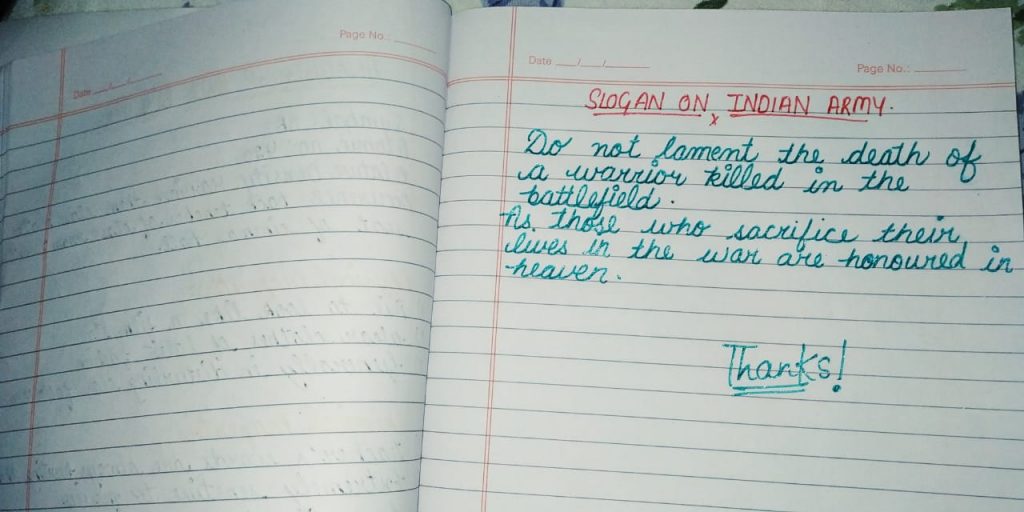 Page No.:
Date
Date
Page No.:
SLOGAN ON INDIAN ARMY.
x
Do not lament the death of
a warrior killed in the
battlefield.
As those who sacrifice their
lives in the war are honoured in
heaven.
Thanks!